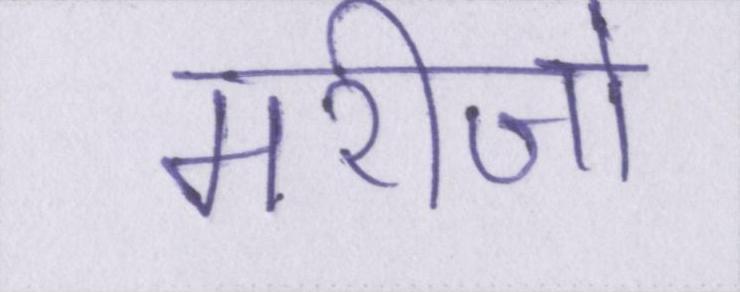 मरीजो